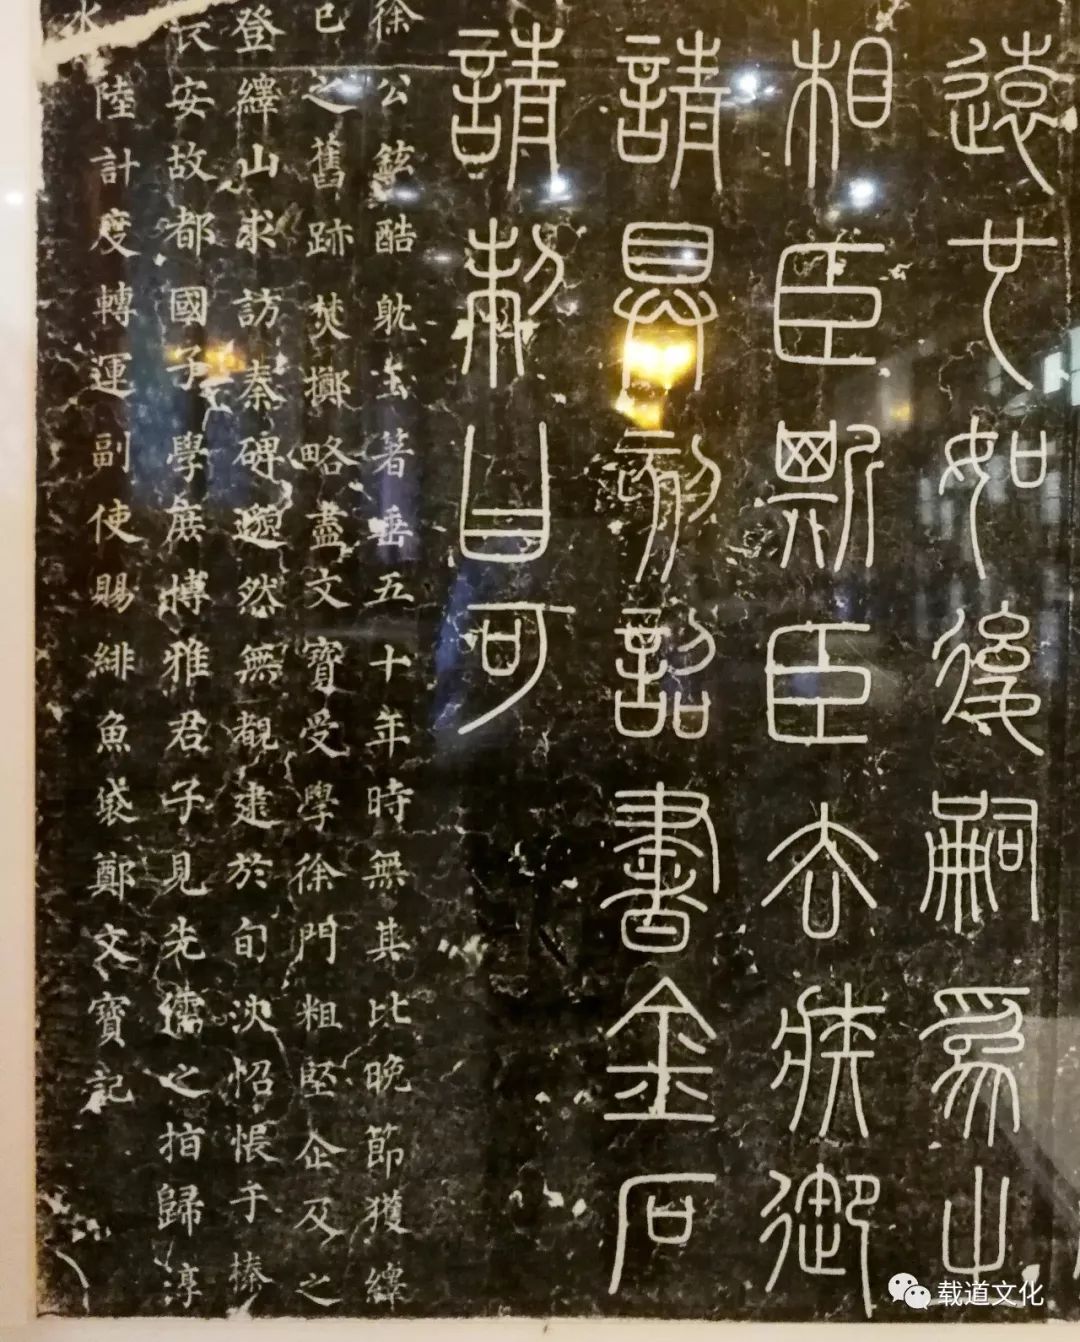 遠也如後嗣為之
相臣斯臣去疾御
請具刻詔書金石
請制曰可
徐公鉉酷耽玉著垂五十年時無其比晚節獲繹
己之舊跡焚擲略盡文寶受學徐門粗堅企及之
登繹山求訪秦碑邈然無覩逮於旬浹怊悵于榛
長安故都國子學庶博雅君子見先儒之指歸淳
水陸計度轉運副使賜緋魚袋鄭文寶記
载道文化